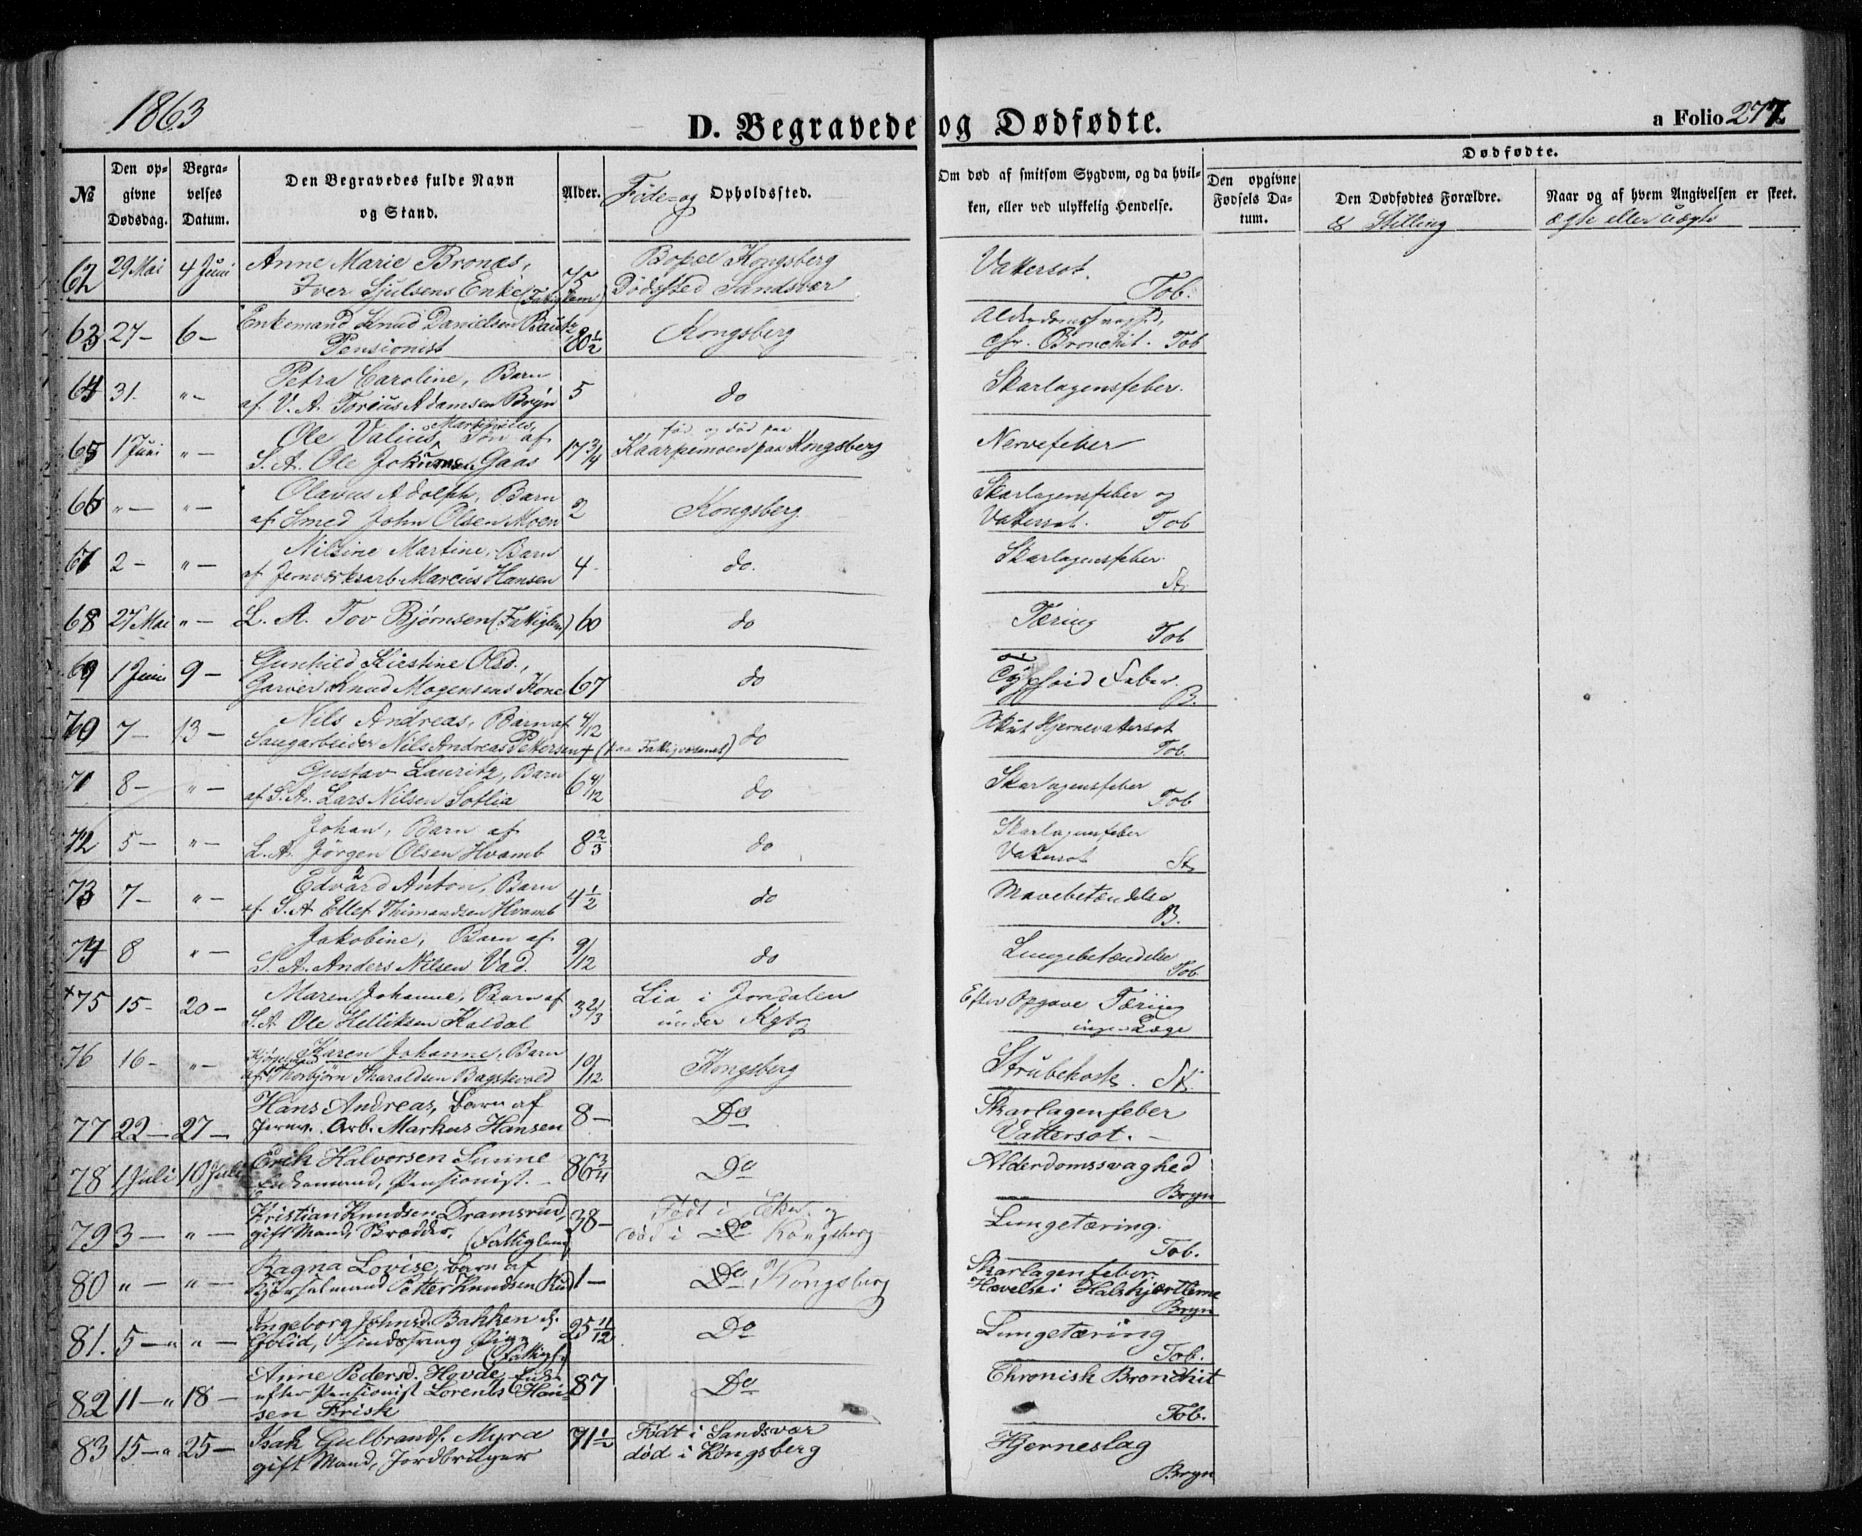 1863
D. Begravede og Dødfødte.
a Folio 277
No
Den opgivne Dødsdag.
Begravelses Datum.
Den Begravedes fulde Navn og Stand.
Alder.
Føde- og Opholdssted.
Om død af smitsom Sygdom, og da hvilken, eller ved ulykkelig Hendelse.
Dødfødte.
Den opgivne Fødsels Datum.
Den Dødfødtes Forældre.
& Stilling
Naar og af hvem Angivelsen er skeet.
ægte eller uægte
62 29 Mai 4 Juni Anne Marie Bronæs, 75 Bopæl Kongsberg Vattersot.
Iver Sjulsens Enke (Fattiglem) Dødssted Sandsvær Tob.
63 27- 6- Enkemand Knud Danielsen 80½ Kongsberg Alderdomssvaghed,
Pensionist chr. Bronchit. Tob
64 31. "- Petra Caroline, Barn 5 do Skarlagensfeber.
af V. A. Torius Adamsen Bryn
65 1 Juni "- Ole Valius Martinius, Søn af 17¾ fød. og død paa Nervefeber
S. A. Ole Johnsen Gaas Kaarpemoen paa Kongsberg
66 "- "- Olavus Adolph, Barn 2 Kongsberg. Skarlagensfeber og
af Smed John Olsen Moen Vattersot. Tob
67 2- "- Nilsine Martine, Barn 4 do. Skarlagensfeber.
af Jernværksarb Marcus Hansen St.
68 27 Mai "- L. A. Tov Bjørnsen (Fattiglem) 60 do Tæring Tob
69 1 Juni 9- Gunhild Kirstine Olsd., 67 do Typhoid Feber.
Garver Knud Mogensens Kone B.
70 7- 13- Nils Andreas, Barn af 4/12 do Akut Hjernevattersot
Saugarbeider Nils Andreas Pettersen + (paa Fattigvæsenet) Tob.
71 8- "- Gustav Lauritz, Barn 6 4/12 do Skarlagensfeber
af S. A. Lars Nilsen Sotlia Tob
72 5- "- Johan, Barn af 8⅔ do Skarlagensfeber
L. A. Jörgen Olsen Hvamb Vattersot St.
73 7- "- Edvard Anton, Barn 4½ do Mavebetændelse
af S. A. Ellef Thimandsen Hvamb B.
74 8 "- Jakobine, Barn af 9/12 do Lungebetændelse
S. A. Anders Nilsen Vad. Tob.
×75 15- 20- Maren Johanne, Barn af 3⅔ Lia i Jondalen Efter Opgave Tæring
S. A. Ole Helliksen Kaldal under Kgbg ingen Læge
76 16- "- Karen Johanne, Barn 10/12 Kongsberg Strubehoste. St.
af Thorbjörn Tharaldsen Bagstevold
77 22- 27- Hans Andreas, barn af 8- Do Skarlagenfeber
Jernv. Arb. Markus Hansen Vattersot.-
78 1 Juli 10 Juli Erik Halvorsen Sunne 86¾ Do Alderdomssvaghed
Enkemand, Pensionist.- Bryn
79 3- "- Kristian Knudsen Dramsrud, 38- Født i Eker og Lungetæring.
gift Mand, Skrædder. (Fattiglem) død i Do Kongsberg Tob.
80 "- "- Ragna Lovise, barn af 1- Do Kongsberg Skarlagenfeber
Kjørselmand Petter Knudsen Hævelse i Halskjertlerne Bryn
81. 5- "- Ingeborg Johnsd. Bakken 25 11/12 Do Lungetæring
Pige (Fattigl.) Tob.
82 11- 18- Anne Pedersd. Hovde, Enke 87 Do Chronisk Bronchit
efter Pensionist Lorents Hansen Frisk Tob.
83 15- 25- Isak Gulbrands. Myra 71½ Født i Sandsvær Hjerneslag
gift Mand, Jordbruger død i Kongsberg Bryn